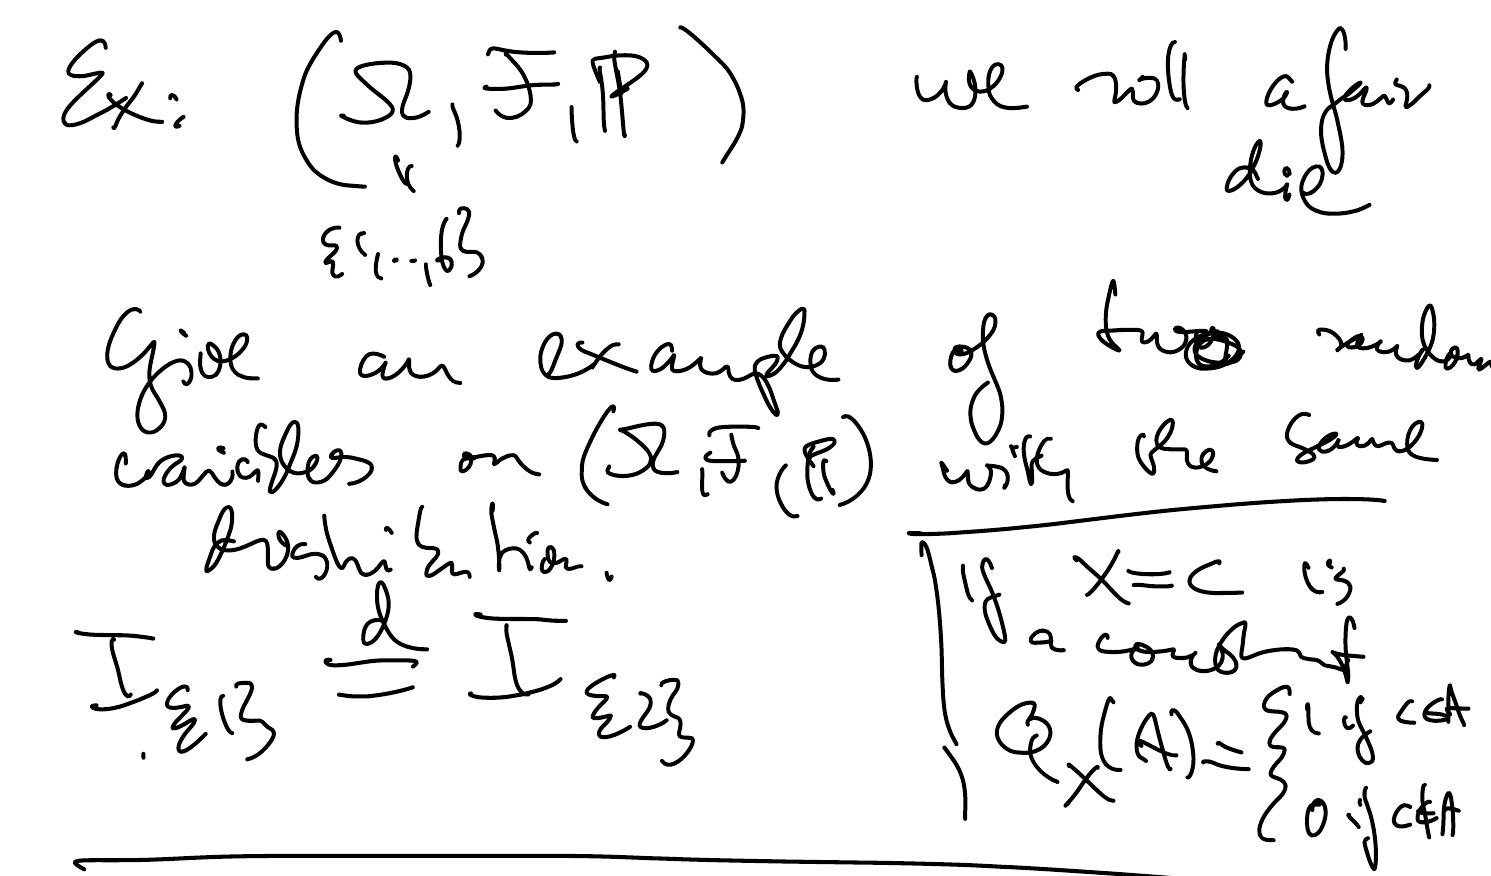 Ex: (Ω, F, P) we roll a fair
die
{1,..,6}
Give an example of two random
variables on (Ω, F, P) with the same
distribution.
I_{1} =^d I_{2}
if X=c is
a constant
Q_X(A)= { 1 if c∈A
0 if c∉A